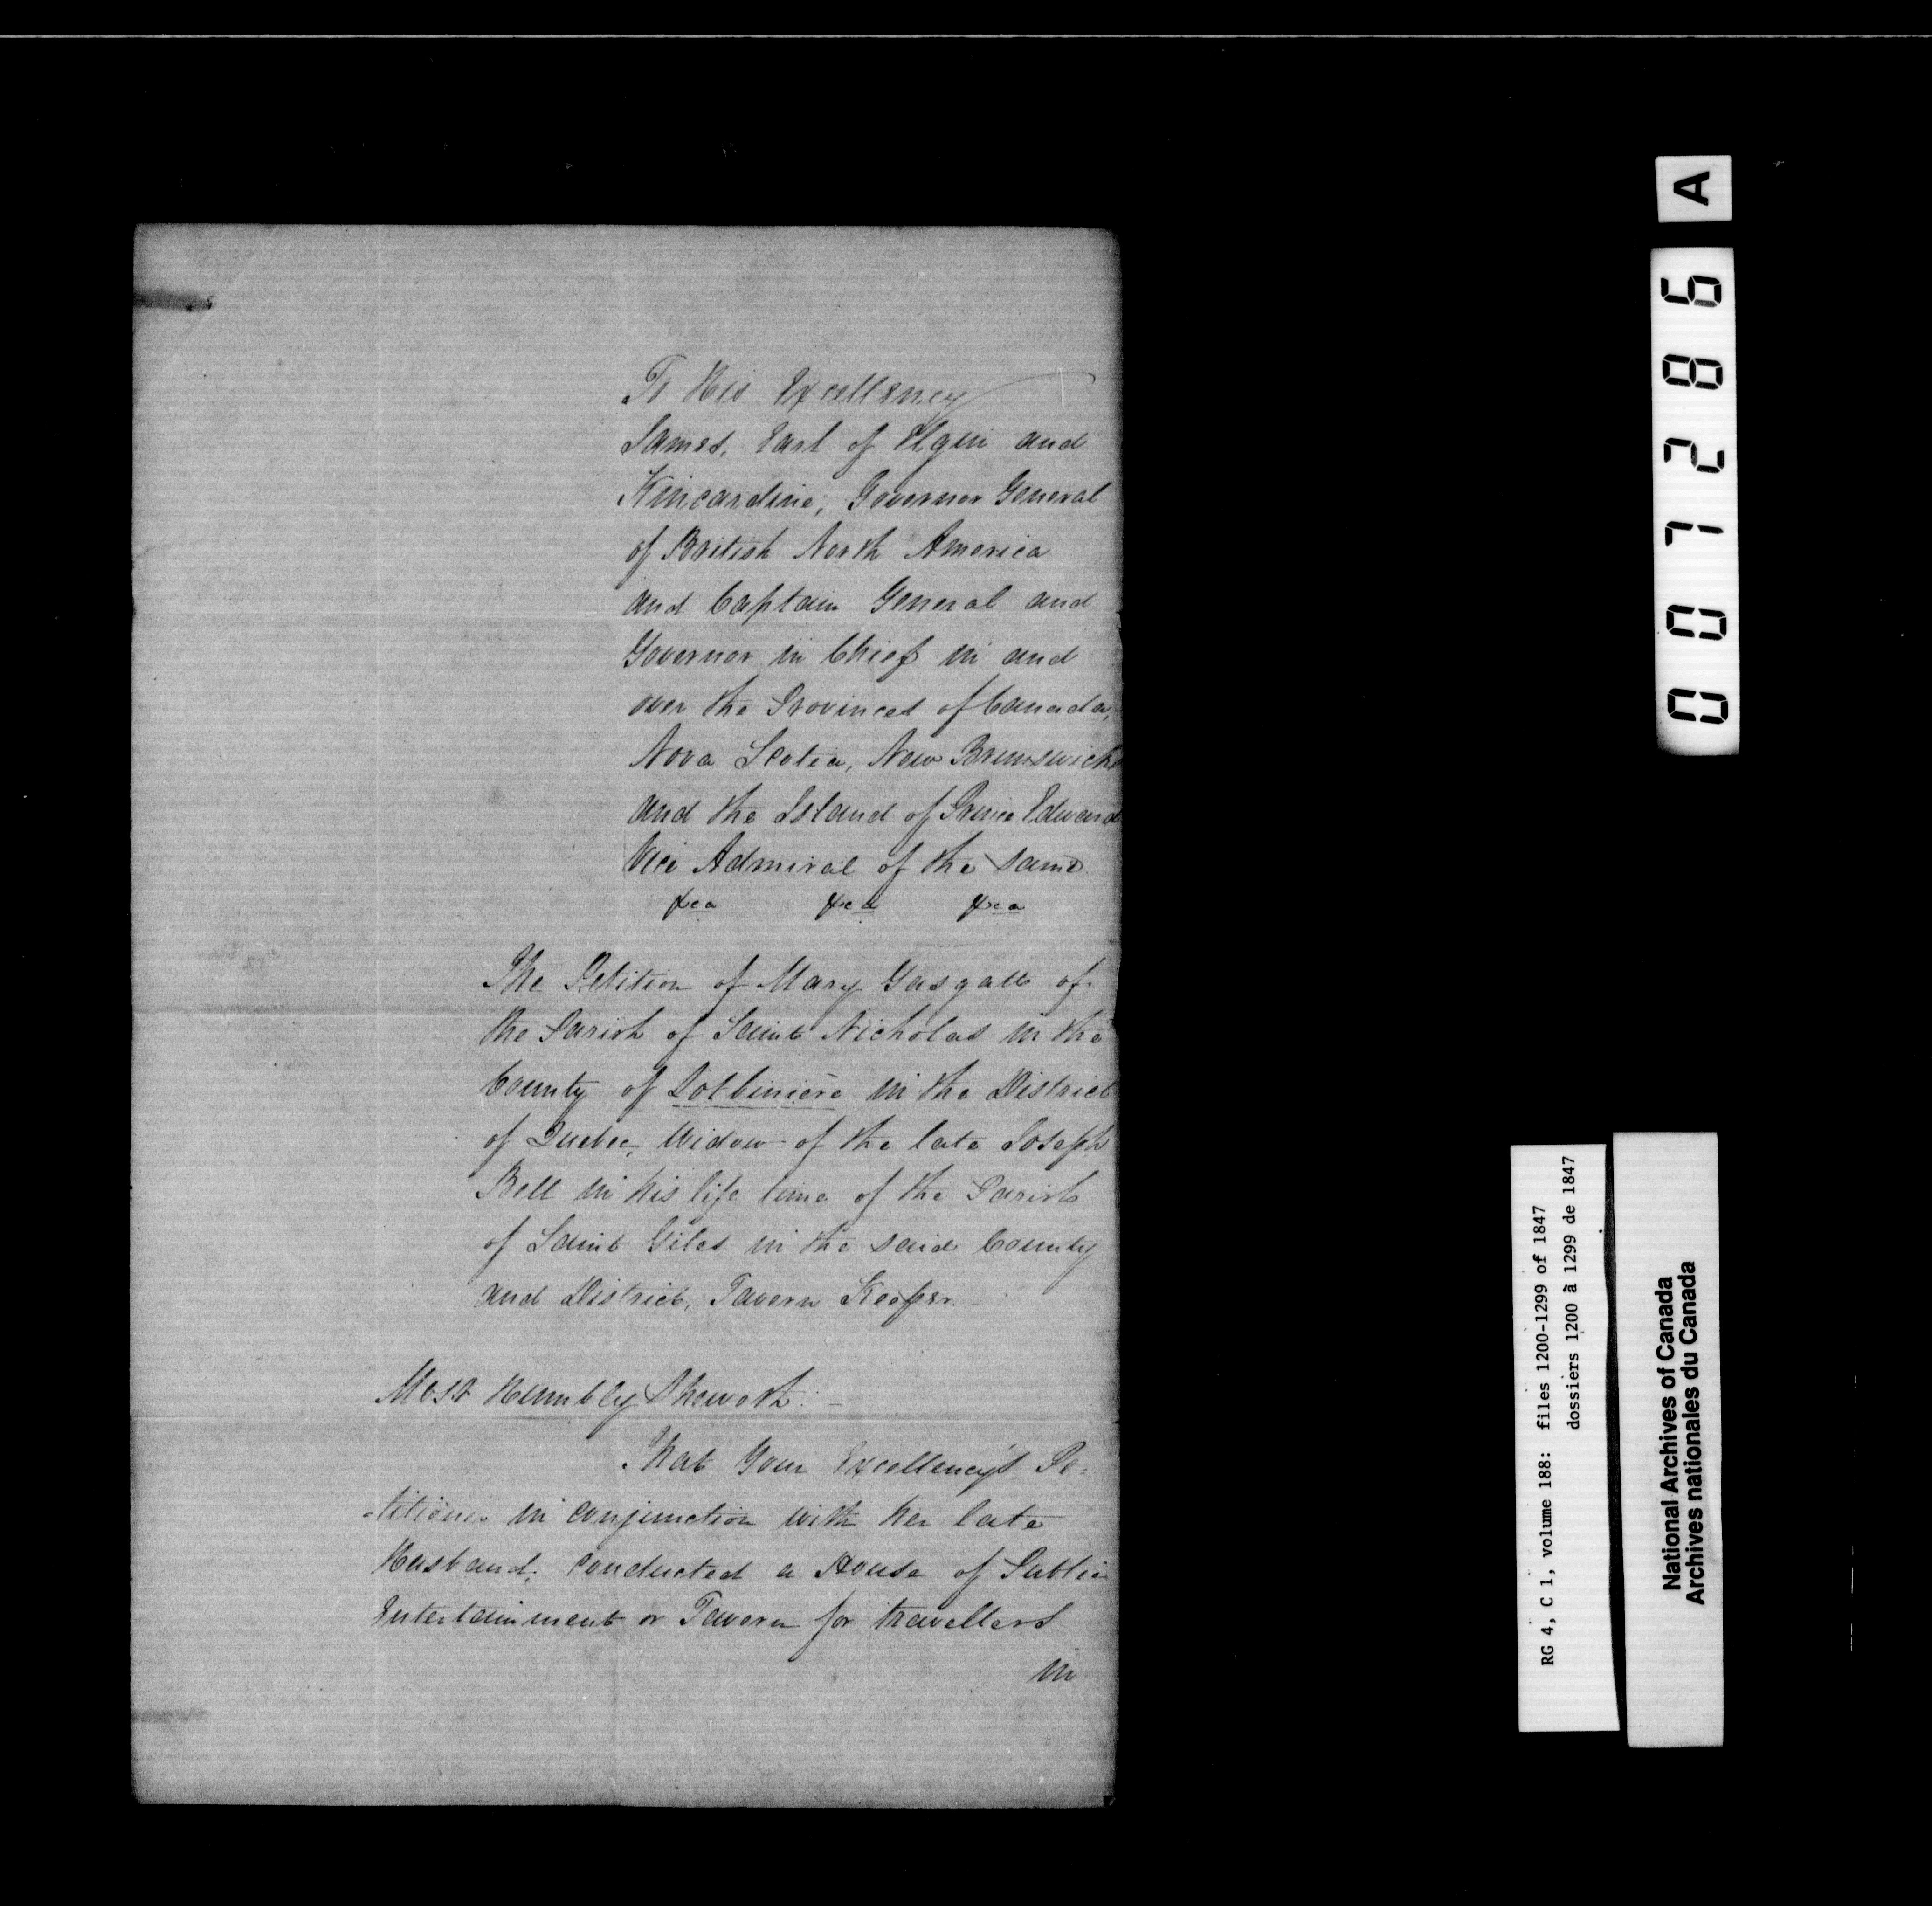 To His Excellency
James, Earl of Elgin and
Kincardine, Governor General
of British North America
and Captain General and
Governor in Chief in and
over the Provinces of Canada,
Nova Scotia, New Brunswick
and the Island of Prince Edward
Vice Admiral of the same
&ca &ca &ca
The Petition of Mary Gasgatt of
the Parish of Saint Nicholas in the
County of Lotbinière in the District
of Quebec, Widow of the late Joseph
Bell in his life time of the Parish
of Saint Giles in the said County
and District, Tavern Keeper. -
Most Humbly Sheweth: -
That Your Excellency's Pe-
-titioner in conjunction with her late
Husband, conducted a House of Public
Entertainment or Tavern for travellers
in
A
007286
RG 4, C 1, volume 188: files 1200-1299 of 1847
dossiers 1200 à 1299 de 1847
National Archives of Canada
Archives nationales du Canada